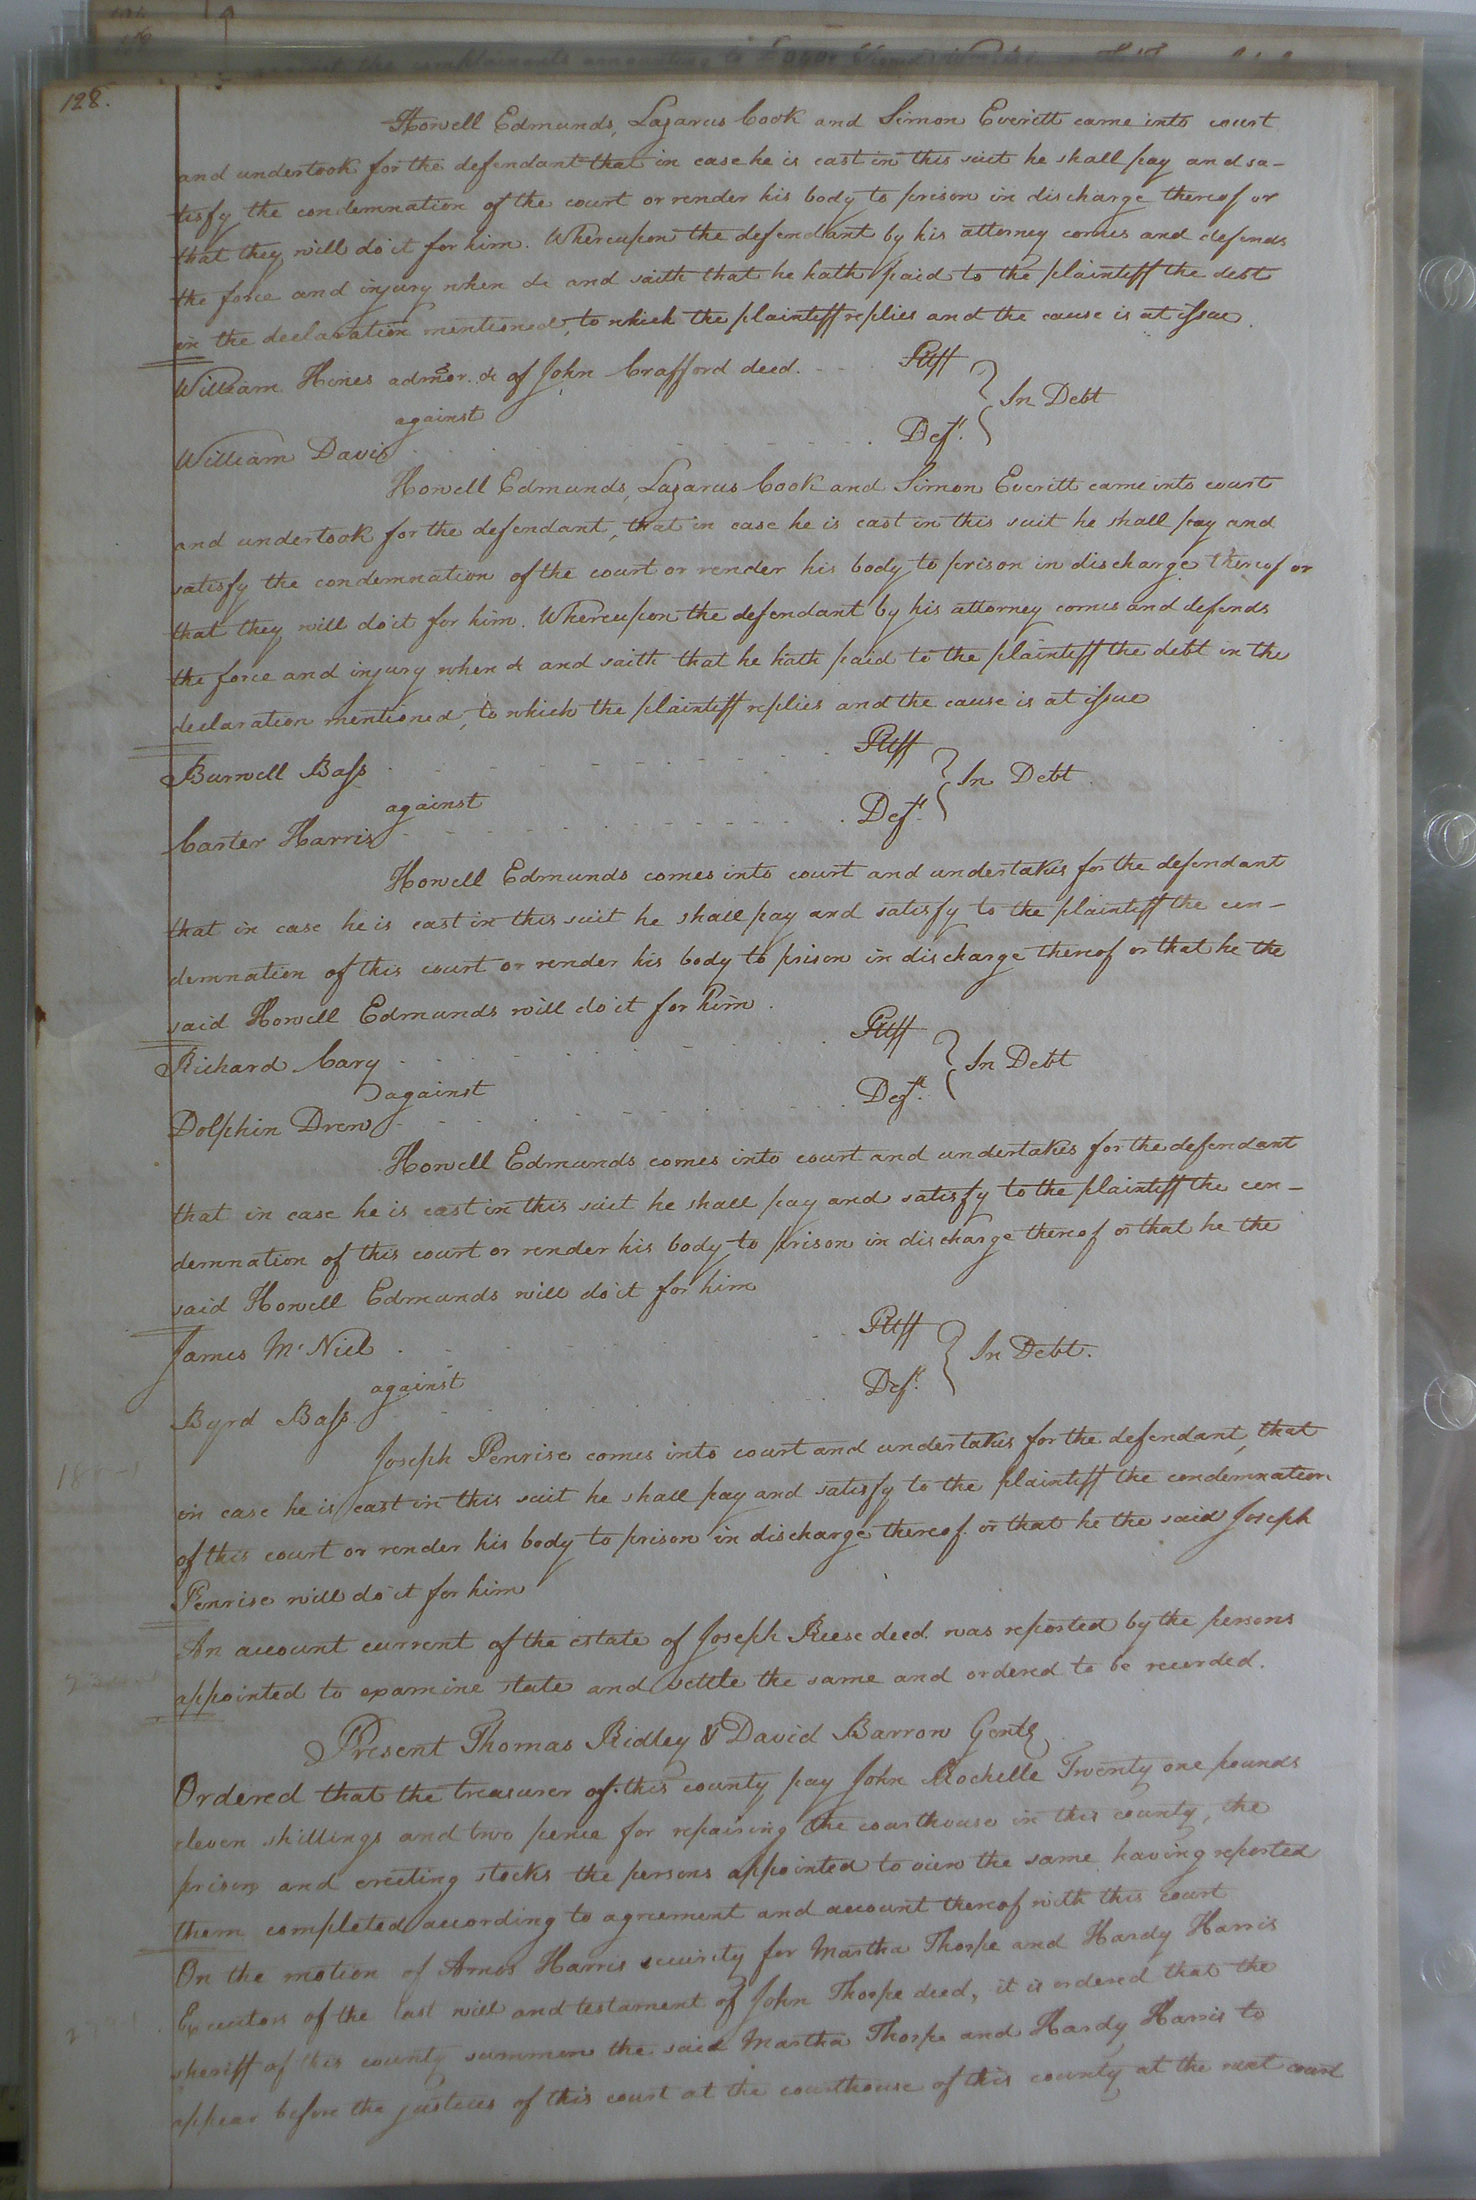 128.
Howell Edmunds, Lazarus Cook and Simon Everitt came into court
and undertook for the defendant that in case he is cast in this suit he shall pay and sa-
tisfy the condemnation of the court or render his body to prison in discharge thereof or
that they will do it for him. Whereupon the defendant by his attorney comes and defends
the force and injury when &c and saith that he hath paid to the plaintiff the debt
in the declaration mentioned, to which the plaintiff replies and the cause is at issue.
William Hines admor. &c of John Crafford decd. Pltff
against } In Debt
William Davis Deft.
Howell Edmunds, Lazarus Cook and Simon Everitt came into court
and undertook for the defendant, that in case he is cast in this suit he shall pay and
satisfy the condemnation of the court or render his body to prison in discharge thereof or
that they will do it for him. Whereupon the defendant by his attorney comes and defends
the force and injury when &c and saith that he hath paid to the plaintiff the debt in the
declaration mentioned, to which the plaintiff replies and the cause is at issue
Burwell Bass Pltff
against } In Debt
Carter Harris Deft.
Howell Edmunds comes into court and undertakes for the defendant
that in case he is cast in this suit he shall pay and satisfy to the plaintiff the con-
demnation of this court or render his body to prison in discharge thereof or that he the
said Howell Edmunds will do it for him.
Richard Cary Pltff
against } In Debt
Dolphin Drew Deft.
Howell Edmunds comes into court and undertakes for the defendant
that in case he is cast in this suit he shall pay and satisfy to the plaintiff the con-
demnation of this court or render his body to prison in discharge thereof or that he the
said Howell Edmunds will do it for him
James McNiel Pltff
against } In Debt.
Byrd Bass Deft.
Joseph Penrise comes into court and undertakes for the defendant, that
in case he is cast in this suit he shall pay and satisfy to the plaintiff the condemnation
of this court or render his body to prison in discharge thereof or that he the said Joseph
Penrise will do it for him
An account current of the estate of Joseph Reese decd. was reported by the persons
appointed to examine state and settle the same and ordered to be recorded.
Present Thomas Ridley & David Barrow Gents
Ordered that the treasurer of this county pay John Rochelle Twenty one pounds
eleven shillings and two pence for repairing the courthouse in this county, the
prison and erecting stocks the persons appointed to view the same having reported
them completed according to agreement and account thereof with this court
On the motion of Amos Harris security for Martha Thorpe and Hardy Harris
Executors of the last will and testament of John Thorpe decd, it is ordered that the
sheriff of this county summon the said Martha Thorpe and Hardy Harris to
appear before the justices of this court at the courthouse of this county at the next court